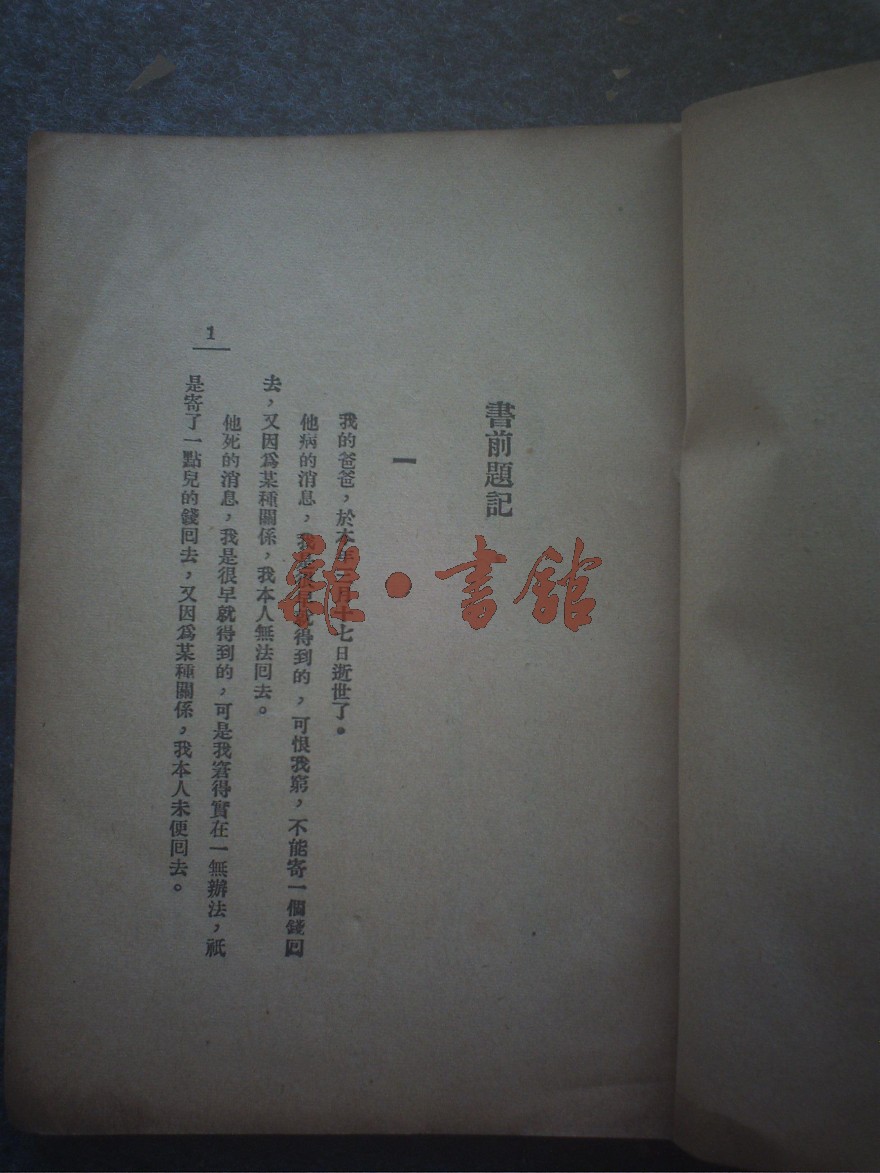 書前題記
一
我的爸爸，於本年二月十七日逝世了。
他病的消息，我是很早就得到的，可恨我窮，不能寄一個錢回
去，又因爲某種關係，我本人無法回去。
他死的消息，我是很早就得到的，可是我窘得實在一無辦法，祇
是寄了一點兒的錢回去，又因爲某種關係，我本人未便回去。
1
雜·書館